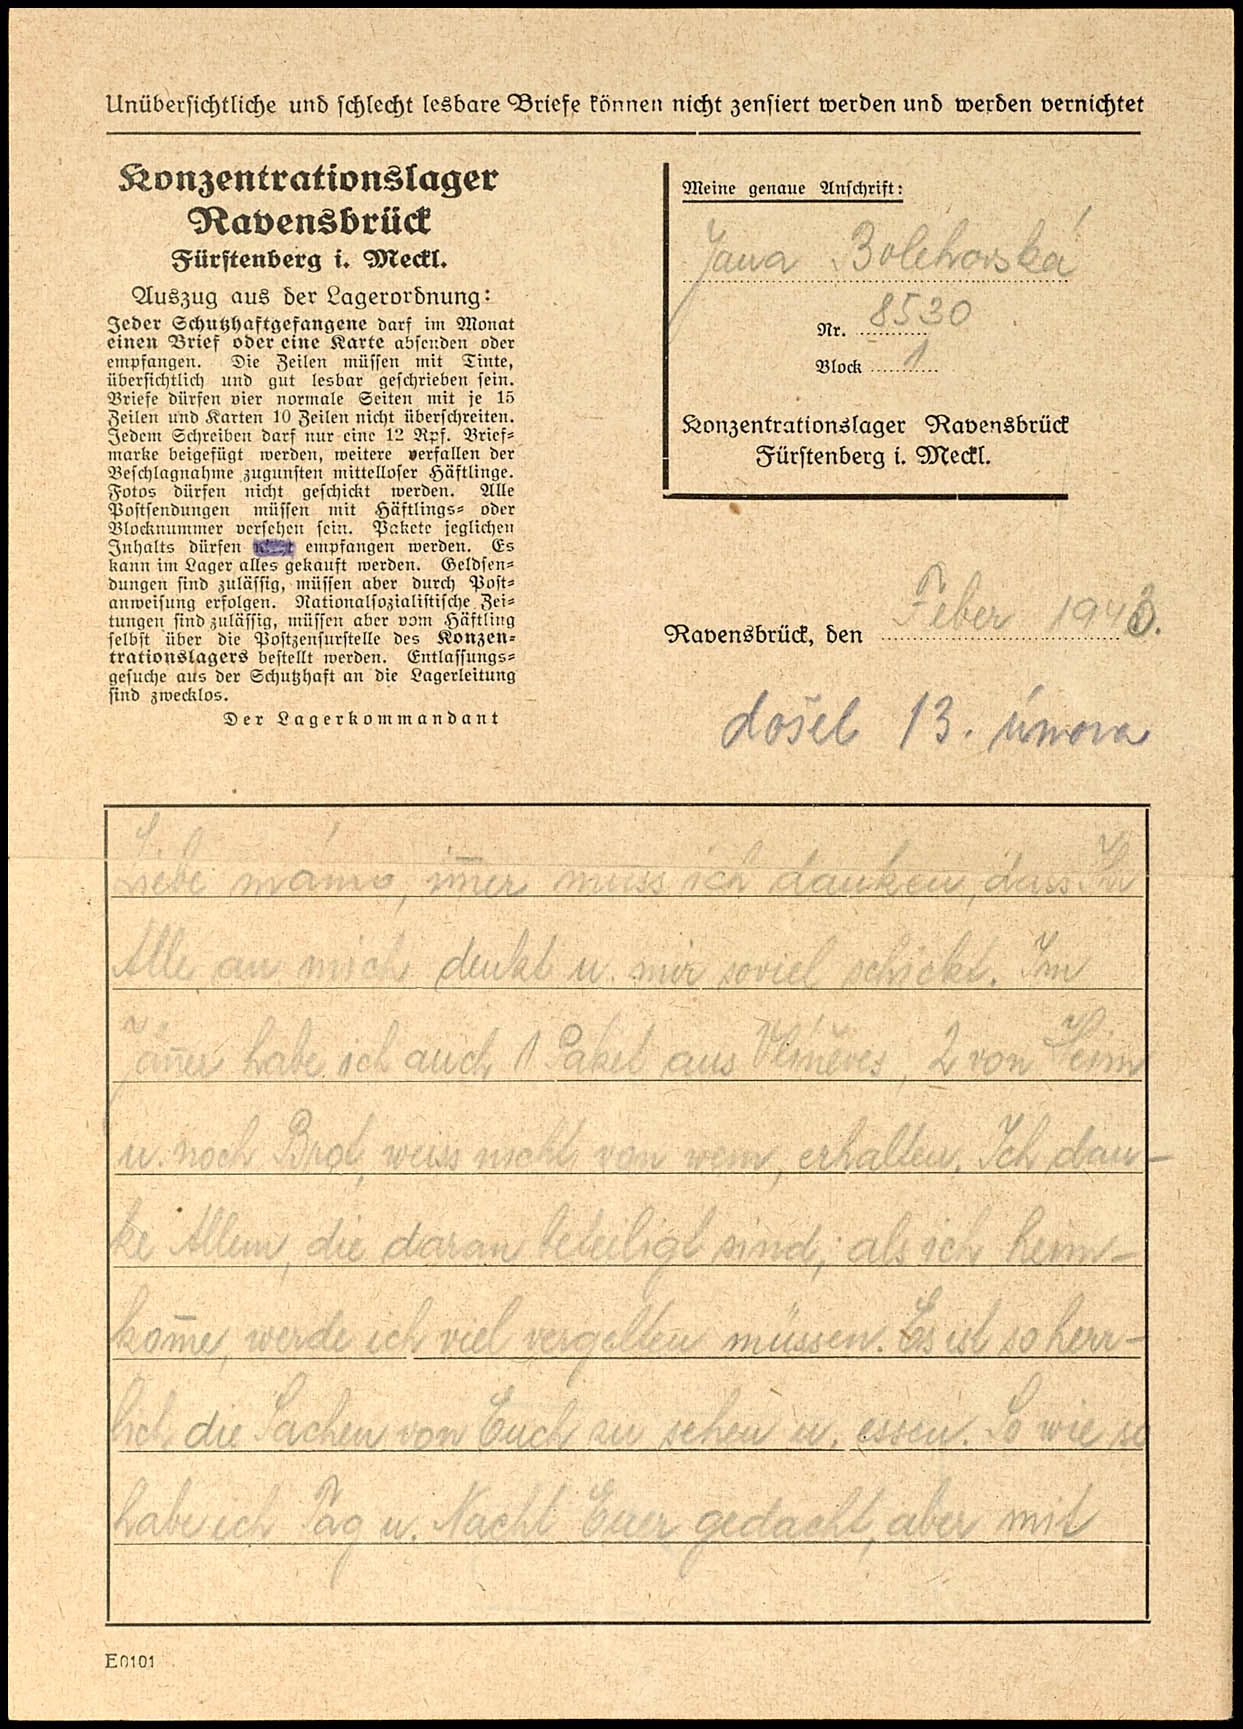 Unübersichtliche und schlecht lesbare Briefe können nicht zensiert werden und werden vernichtet
Konzentrationslager
Ravensbrück
Fürstenberg i. Meckl.
Auszug aus der Lagerordnung:
Jeder Schutzhaftgefangene darf im Monat
einen Brief oder eine Karte absenden oder
empfangen. Die Zeilen müssen mit Tinte,
übersichtlich und gut lesbar geschrieben sein.
Briefe dürfen vier normale Seiten mit je 15
Zeilen und Karten 10 Zeilen nicht überschreiten.
Jedem Schreiben darf nur eine 12 Rpf. Brief=
marke beigefügt werden, weitere verfallen der
Beschlagnahme zugunsten mittelloser Häftlinge.
Fotos dürfen nicht geschickt werden. Alle
Postsendungen müssen mit Häftlings= oder
Blocknummer versehen sein. Pakete jeglichen
Inhalts dürfen empfangen werden. Es
kann im Lager alles gekauft werden. Geldsen=
dungen sind zulässig, müssen aber durch Post=
anweisung erfolgen. Nationalsozialistische Zei=
tungen sind zulässig, müssen aber vom Häftling
selbst über die Postzensurstelle des Konzen=
trationslagers bestellt werden. Entlassungs=
gesuche aus der Schutzhaft an die Lagerleitung
sind zwecklos.
Der Lagerkommandant
Meine genaue Anschrift:
Jana Bolehovská
Nr. 8530
Block 1
Konzentrationslager Ravensbrück
Fürstenberg i. Meckl.
Ravensbrück, den Feber 1943.
došel 13. února
Liebe mámo, im̅er muss ich danken, dass Ihr
Alle an mich denkt u. mir soviel schickt. Im
Jän̅er habe ich auch 1 Paket aus 2 von Heim
u. noch Brot, weiss nicht von wem, erhalten. Ich dan-
ke Allem, die daran beteiligt sind, als ich heim-
kom̅e, werde ich viel vergelten müssen. Es ist so herr-
lich die Sachen von Euch zu sehen u. essen. So wie so
habe ich Tag u. Nacht Euer gedacht, aber mit
E0101